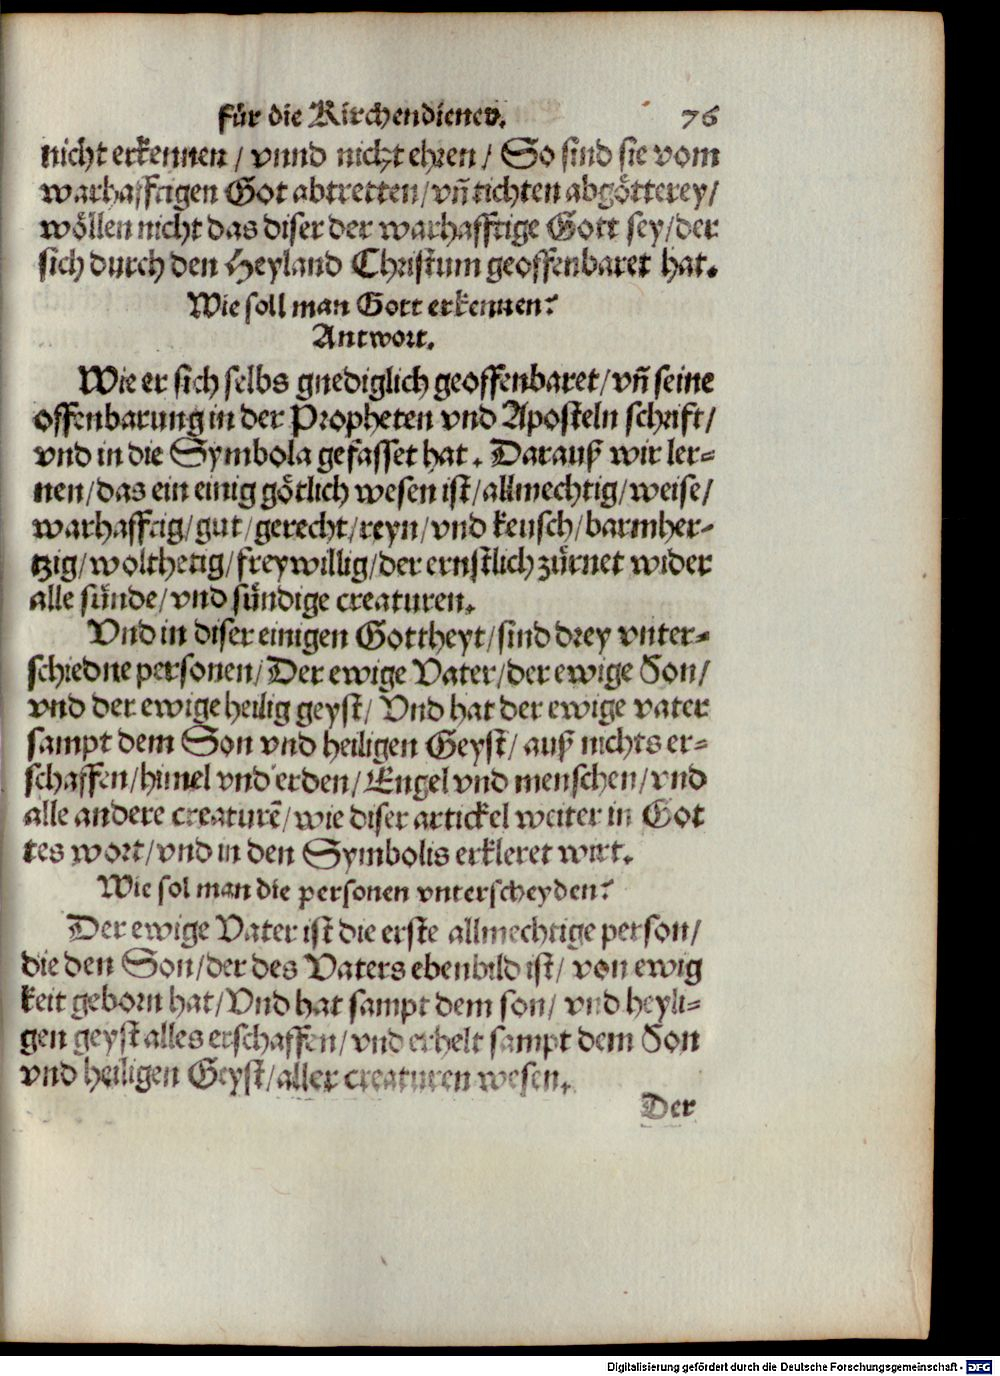 für die Kirchendiener. 76
nicht erkennen / vnnd nicht ehren / So sind sie vom
warhafftigen Got abtretten / vñ tichten abgötterey /
wöllen nicht das diser der warhafftige Gott sey / der
sich durch den Heyland Christum geoffenbaret hat.
Wie soll man Gott erkennen?
Antwort.
Wie er sich selbs gnediglich geoffenbaret / vñ seine
offenbarung in der Propheten vnd Aposteln schrift /
vnd in die Symbola gefasset hat. Darauß wir ler-
nen / das ein einig götlich wesen ist / allmechtig / weise /
warhafftig / gut / gerecht / reyn / vnd keusch / barmher-
tzig / wolthetig / freywillig / der ernstlich zürnet wider
alle sünde / vnd sündige creaturen.
Vnd in diser einigen Gottheyt / sind drey vnter-
schiedne personen / Der ewige Vater / der ewige Son /
vnd der ewige heilig geyst / Vnd hat der ewige vater
sampt dem Son vnd heiligen Geyst / auß nichts er-
schaffen / himel vnd erden / Engel vnd menschen / vnd
alle andere creaturē / wie diser artickel weiter in Got
tes wort / vnd in den Symbolis erkleret wirt.
Wie sol man die personen vnterscheyden?
Der ewige Vater ist die erste allmechtige person /
die den Son / der des Vaters ebenbild ist / von ewig
keit geborn hat / Vnd hat sampt dem son / vnd heyli-
gen geyst alles erschaffen / vnd erhelt sampt dem Son
vnd heiligen Geyst / aller creaturen wesen.
Der
Digitalisierung gefördert durch die Deutsche Forschungsgemeinschaft - DFG